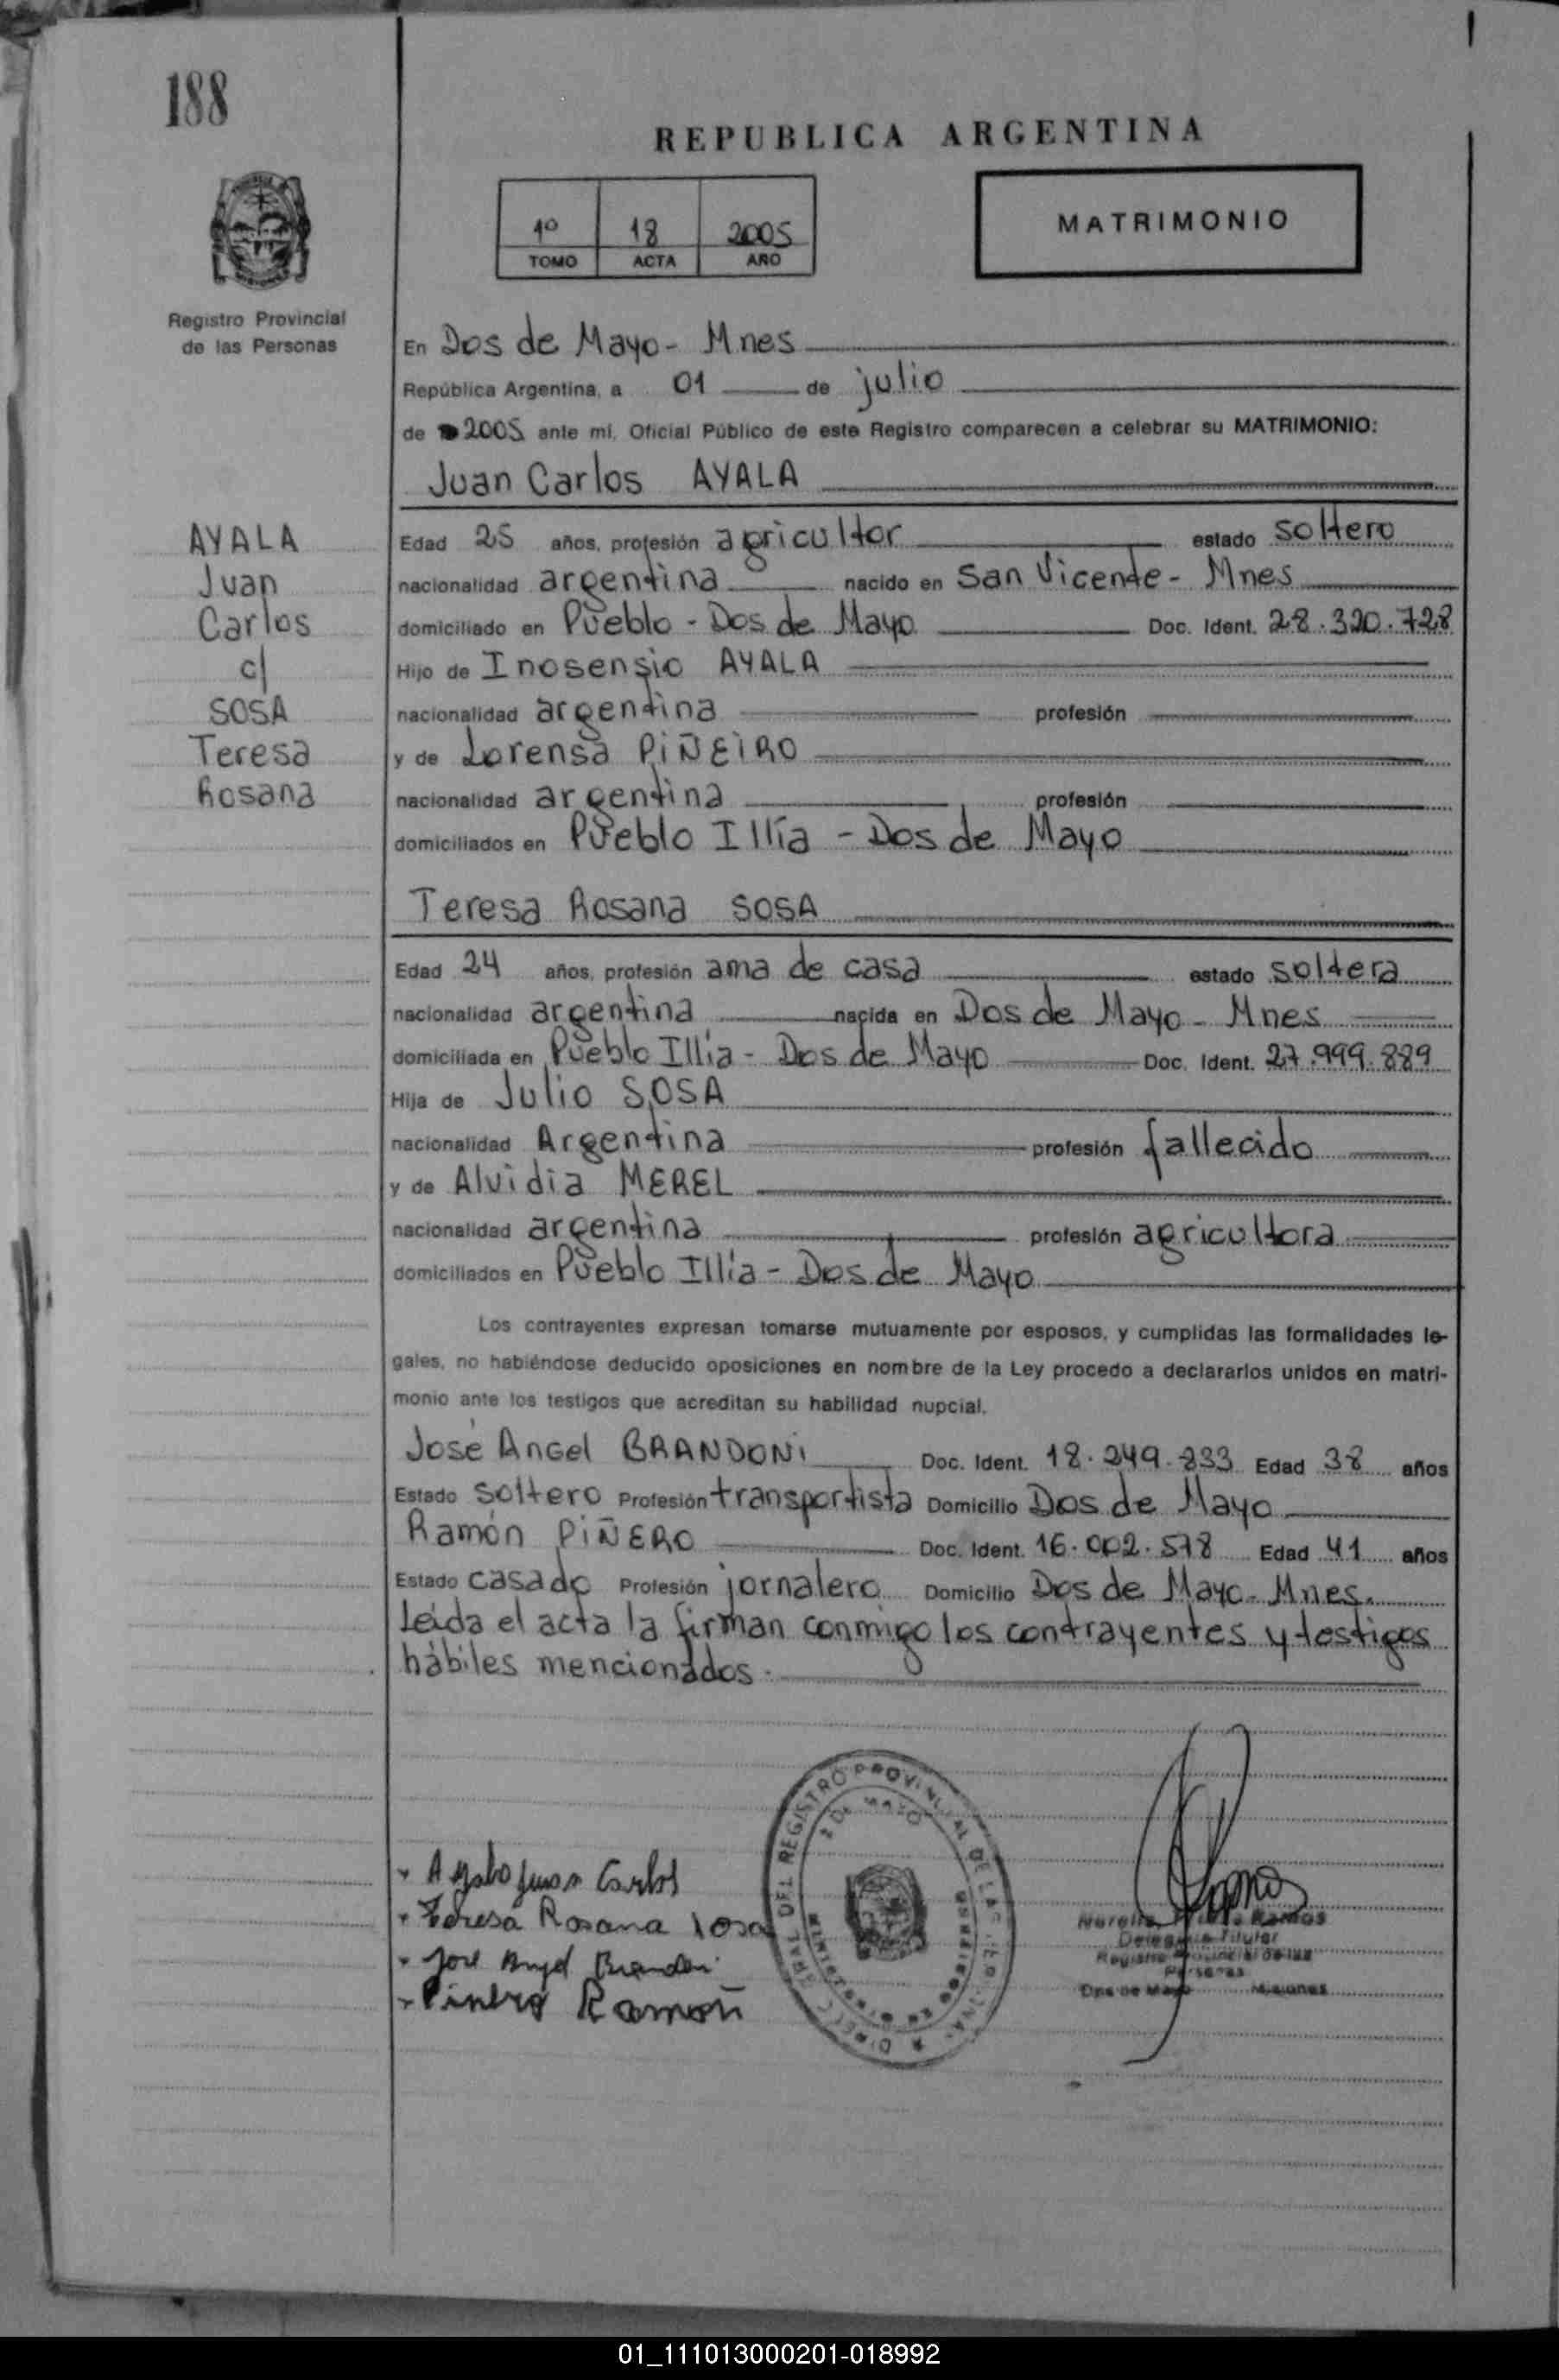 188
REPUBLICA ARGENTINA
1º 18 2005
TOMO ACTA AÑO
MATRIMONIO
Registro Provincial
de las Personas
En Dos de Mayo - Mnes
República Argentina, a 01 de julio
de 2005 ante mi, Oficial Público de este Registro comparecen a celebrar su MATRIMONIO:
Juan Carlos AYALA
AYALA
Juan
Carlos
c/
SOSA
Teresa
Rosana
Edad 25 años, profesión agricultor estado soltero
nacionalidad argentina nacido en San Vicente - Mnes
domiciliado en Pueblo - Dos de Mayo Doc. Ident. 28.320.728
Hijo de Inosensio AYALA
nacionalidad argentina profesión
y de Lorensa PIÑEIRO
nacionalidad argentina profesión
domiciliados en Pueblo Illia - Dos de Mayo
Teresa Rosana SOSA
Edad 24 años, profesión ama de casa estado soltera
nacionalidad argentina nacida en Dos de Mayo - Mnes
domiciliada en Pueblo Illia - Dos de Mayo Doc. Ident. 27.999.889
Hija de Julio SOSA
nacionalidad Argentina profesión fallecido
y de Alvidia MEREL
nacionalidad argentina profesión agricultora
domiciliados en Pueblo Illia - Dos de Mayo
Los contrayentes expresan tomarse mutuamente por esposos, y cumplidas las formalidades le-
gales, no habiéndose deducido oposiciones en nombre de la Ley procedo a declararlos unidos en matri-
monio ante los testigos que acreditan su habilidad nupcial.
José Angel BRANDONI Doc. Ident. 18.249.833 Edad 38 años
Estado soltero Profesión transportista Domicilio Dos de Mayo
Ramón PIÑERO Doc. Ident. 16.002.578 Edad 41 años
Estado casado Profesión jornalero Domicilio Dos de Mayo - Mnes.
Leída el acta la firman conmigo los contrayentes y testigos
hábiles mencionados.
Ayala Juan Carlos
Teresa Rosana Sosa
José Angel Brandoni
Piñero Ramón
DEL REGISTRO PROVINCIAL DE LAS
2 DE MAYO
Ramos
Titular
Registro Provincial de las
Personas
Dos de Mayo Misiones
01_111013000201-018992